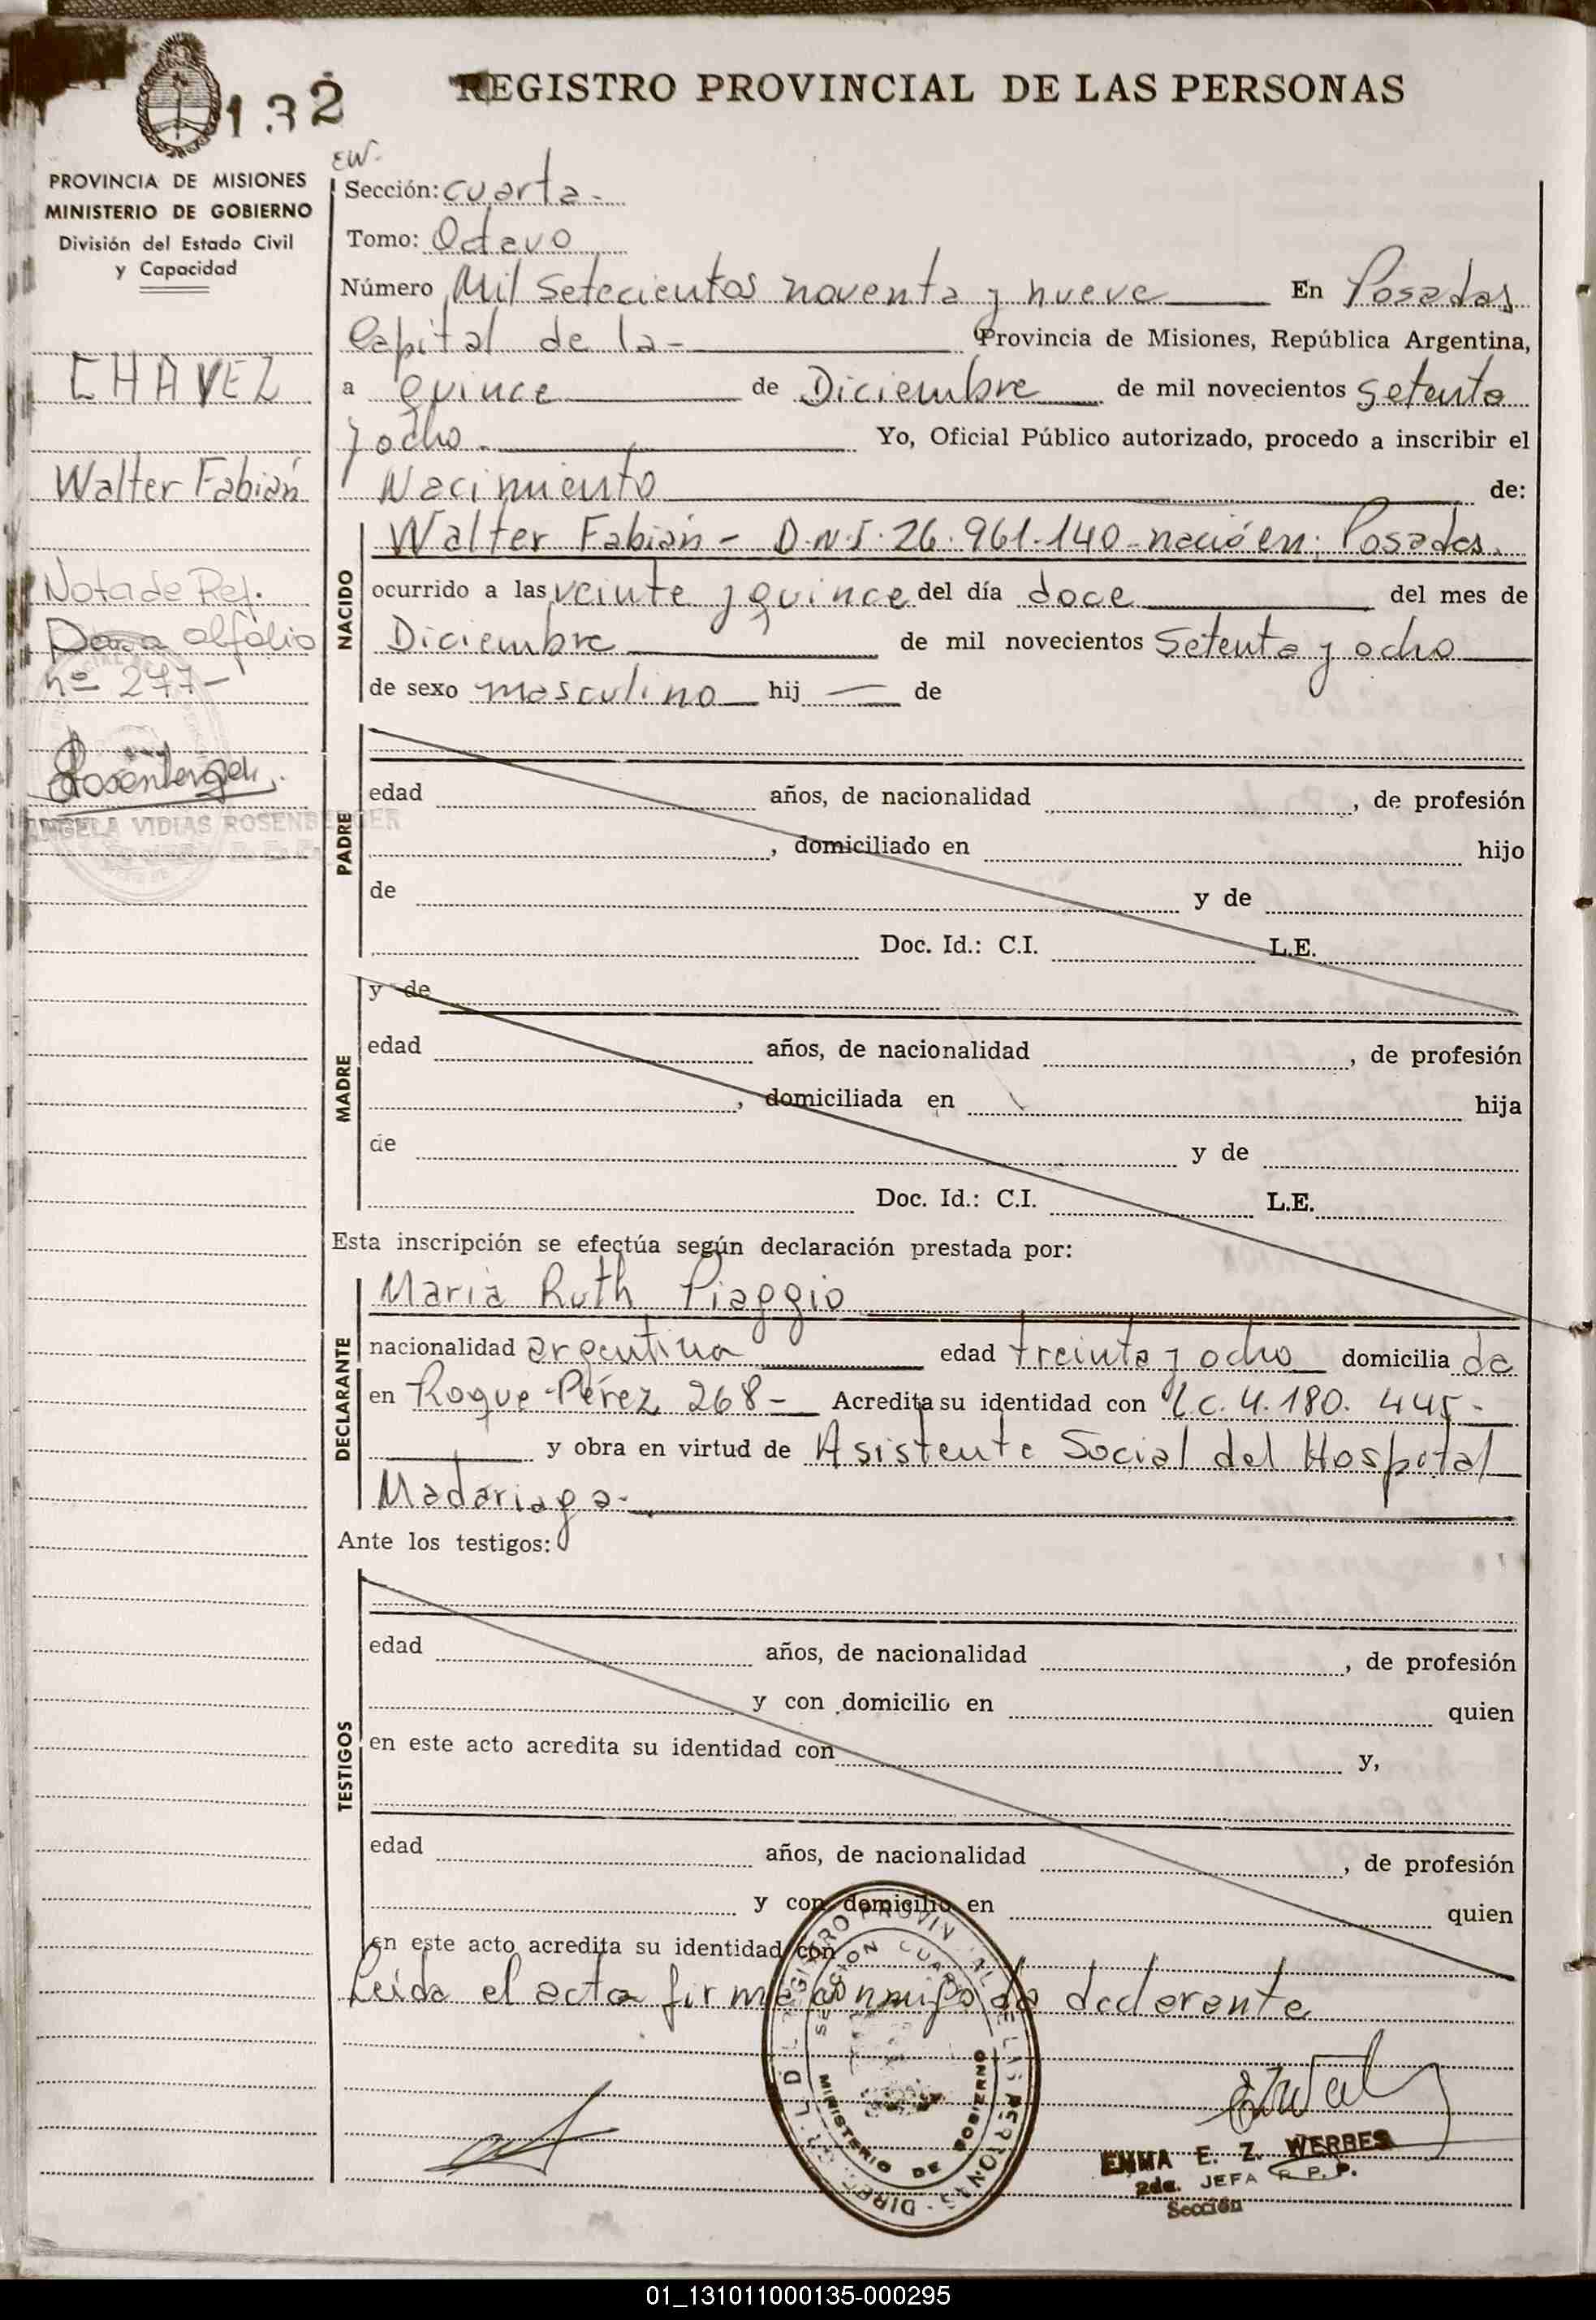 132
REGISTRO PROVINCIAL DE LAS PERSONAS
PROVINCIA DE MISIONES
MINISTERIO DE GOBIERNO
División del Estado Civil
y Capacidad
CHAVEZ
Walter Fabián
Nota de Ref.
Pasa al folio
nº 277-
Rosenberger
ANGELA VIDIAS ROSENBERGER
EW-
Sección: cuarta-
Tomo: Octavo
Número Mil Setecientos noventa y nueve En Posadas
Capital de la- Provincia de Misiones, República Argentina,
a quince de Diciembre de mil novecientos setenta
y ocho- Yo, Oficial Público autorizado, procedo a inscribir el
Nacimiento de:
NACIDO
Walter Fabián - D.N.I. 26.961.140 - nació en: Posadas.
ocurrido a las veinte y quince del día doce del mes de
Diciembre de mil novecientos Setenta y ocho
de sexo masculino hij — de
PADRE
edad años, de nacionalidad , de profesión
, domiciliado en hijo
de y de
Doc. Id.: C.I. L.E.
MADRE
y de
edad años, de nacionalidad , de profesión
, domiciliada en hija
de y de
Doc. Id.: C.I. L.E.
Esta inscripción se efectúa según declaración prestada por:
DECLARANTE
María Ruth Piaggio
nacionalidad argentina edad treinta y ocho domicilia da
en Roque Pérez 268- Acredita su identidad con L.C. 4.180.445-
y obra en virtud de Asistente Social del Hospital
Madariaga-
Ante los testigos:
TESTIGOS
edad años, de nacionalidad , de profesión
y con domicilio en quien
en este acto acredita su identidad con y,
edad años, de nacionalidad , de profesión
y con domicilio en quien
en este acto acredita su identidad con
Leída el acta firma conmigo la declarante
SECCION CUARTA
MINISTERIO DE GOBIERNO
EMMA E. Z. WERBES
2da. JEFA R.P.P.
Sección
01_131011000135-000295